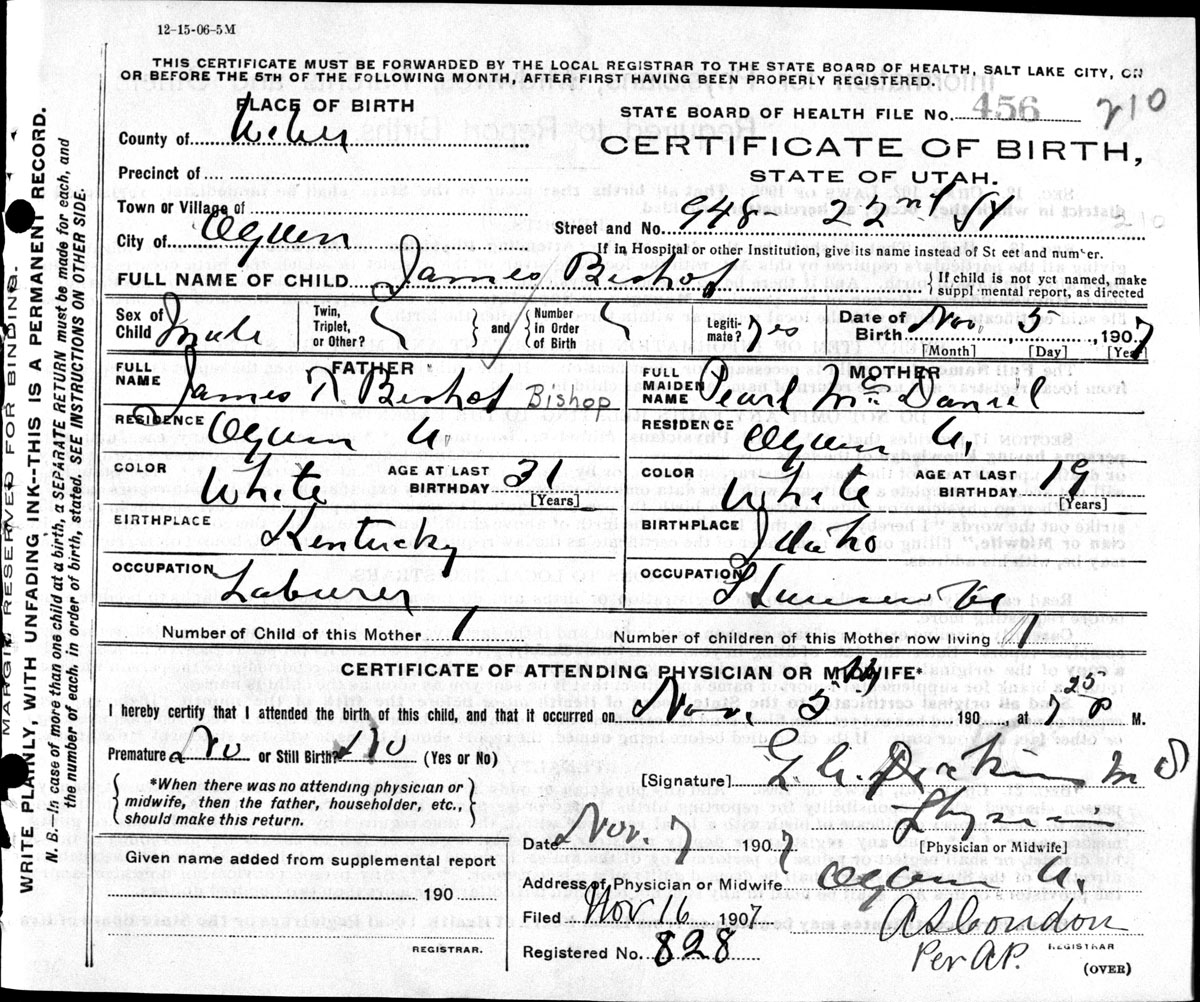 12-15-06-5M
THIS CERTIFICATE MUST BE FORWARDED BY THE LOCAL REGISTRAR TO THE STATE BOARD OF HEALTH, SALT LAKE CITY, ON
OR BEFORE THE 5TH OF THE FOLLOWING MONTH, AFTER FIRST HAVING BEEN PROPERLY REGISTERED.
PLACE OF BIRTH
STATE BOARD OF HEALTH FILE No. 456 210
County of Weber
CERTIFICATE OF BIRTH,
Precinct of
STATE OF UTAH.
Town or Village of
Street and No. 948 - 22nd St
210
City of Ogden
If in Hospital or other Institution, give its name instead of St eet and number.
FULL NAME OF CHILD James Bishof
If child is not yet named, make
suppl mental report, as directed
Sex of Child Male
Twin, Triplet, or Other?
and
Number in Order of Birth
Legiti- mate? yes
Date of Birth Nov. 5, 1907
[Month] [Day] [Year]
FATHER
FULL NAME James R. Bishof Bishop
RESIDENCE Ogden U.
COLOR White
AGE AT LAST BIRTHDAY 31
[Years]
BIRTHPLACE Kentucky
OCCUPATION Laborer
MOTHER
FULL MAIDEN NAME Pearl McDaniel
RESIDENCE Ogden U.
COLOR White
AGE AT LAST BIRTHDAY 19
[Years]
BIRTHPLACE Idaho
OCCUPATION Housewife
Number of Child of this Mother 1
Number of children of this Mother now living 1
CERTIFICATE OF ATTENDING PHYSICIAN OR MIDWIFE*
I hereby certify that I attended the birth of this child, and that it occurred on Nov. 5th 190 , at 7 25 P M.
Premature? No or Still Birth? No (Yes or No)
*When there was no attending physician or
midwife, then the father, householder, etc.,
should make this return.
[Signature] M D
Physician
[Physician or Midwife]
Date Nov. 7 1907
Given name added from supplemental report
190
REGISTRAR.
Address of Physician or Midwife Ogden U.
Filed Nov 16 1907
A S Condon
Per A.P.
REGISTRAR
Registered No. 828
(OVER)
MARGIN RESERVED FOR BINDING.
WRITE PLAINLY, WITH UNFADING INK--THIS IS A PERMANENT RECORD.
N. B. In case of more than one child at a birth, a SEPARATE RETURN must be made for each, and
the number of each, in order of birth, stated. SEE INSTRUCTIONS ON OTHER SIDE.